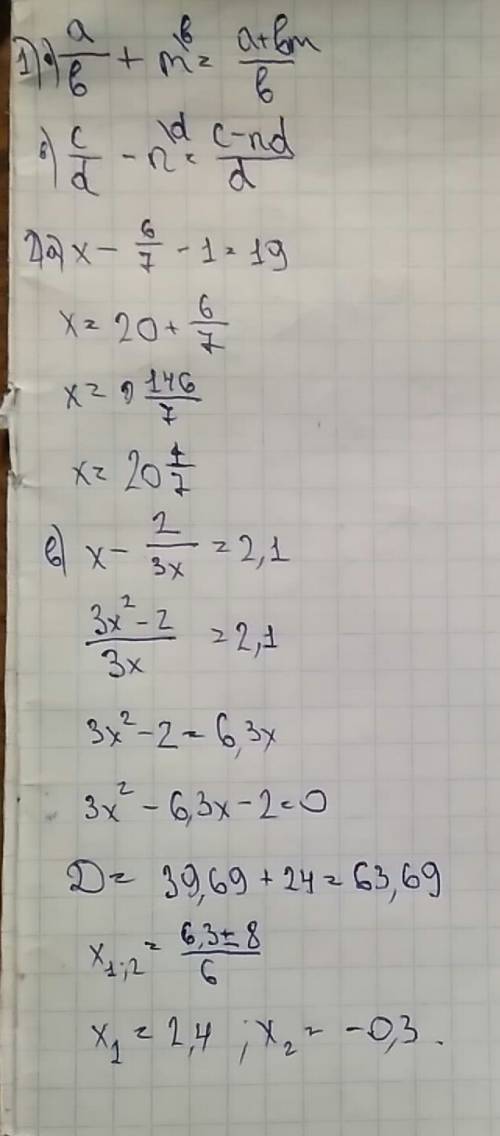 1) а) a/b + m\b = (a+bm)/b
б) c/d - n\d = (c-nd)/d
2) а) x - 6/7 - 1 = 19
x = 20 + 6/7
x = 146/7
x = 20
в) x - 2/3x = 2,1
(3x² - 2)/3x = 2,1
3x² - 2 = 6,3x
3x² - 6,3x - 2 = 0
D = 39,69 + 24 = 63,69
x1;2 = (6,3 ± 8)/6
x1 = 2,4 ; x2 = -0,3.